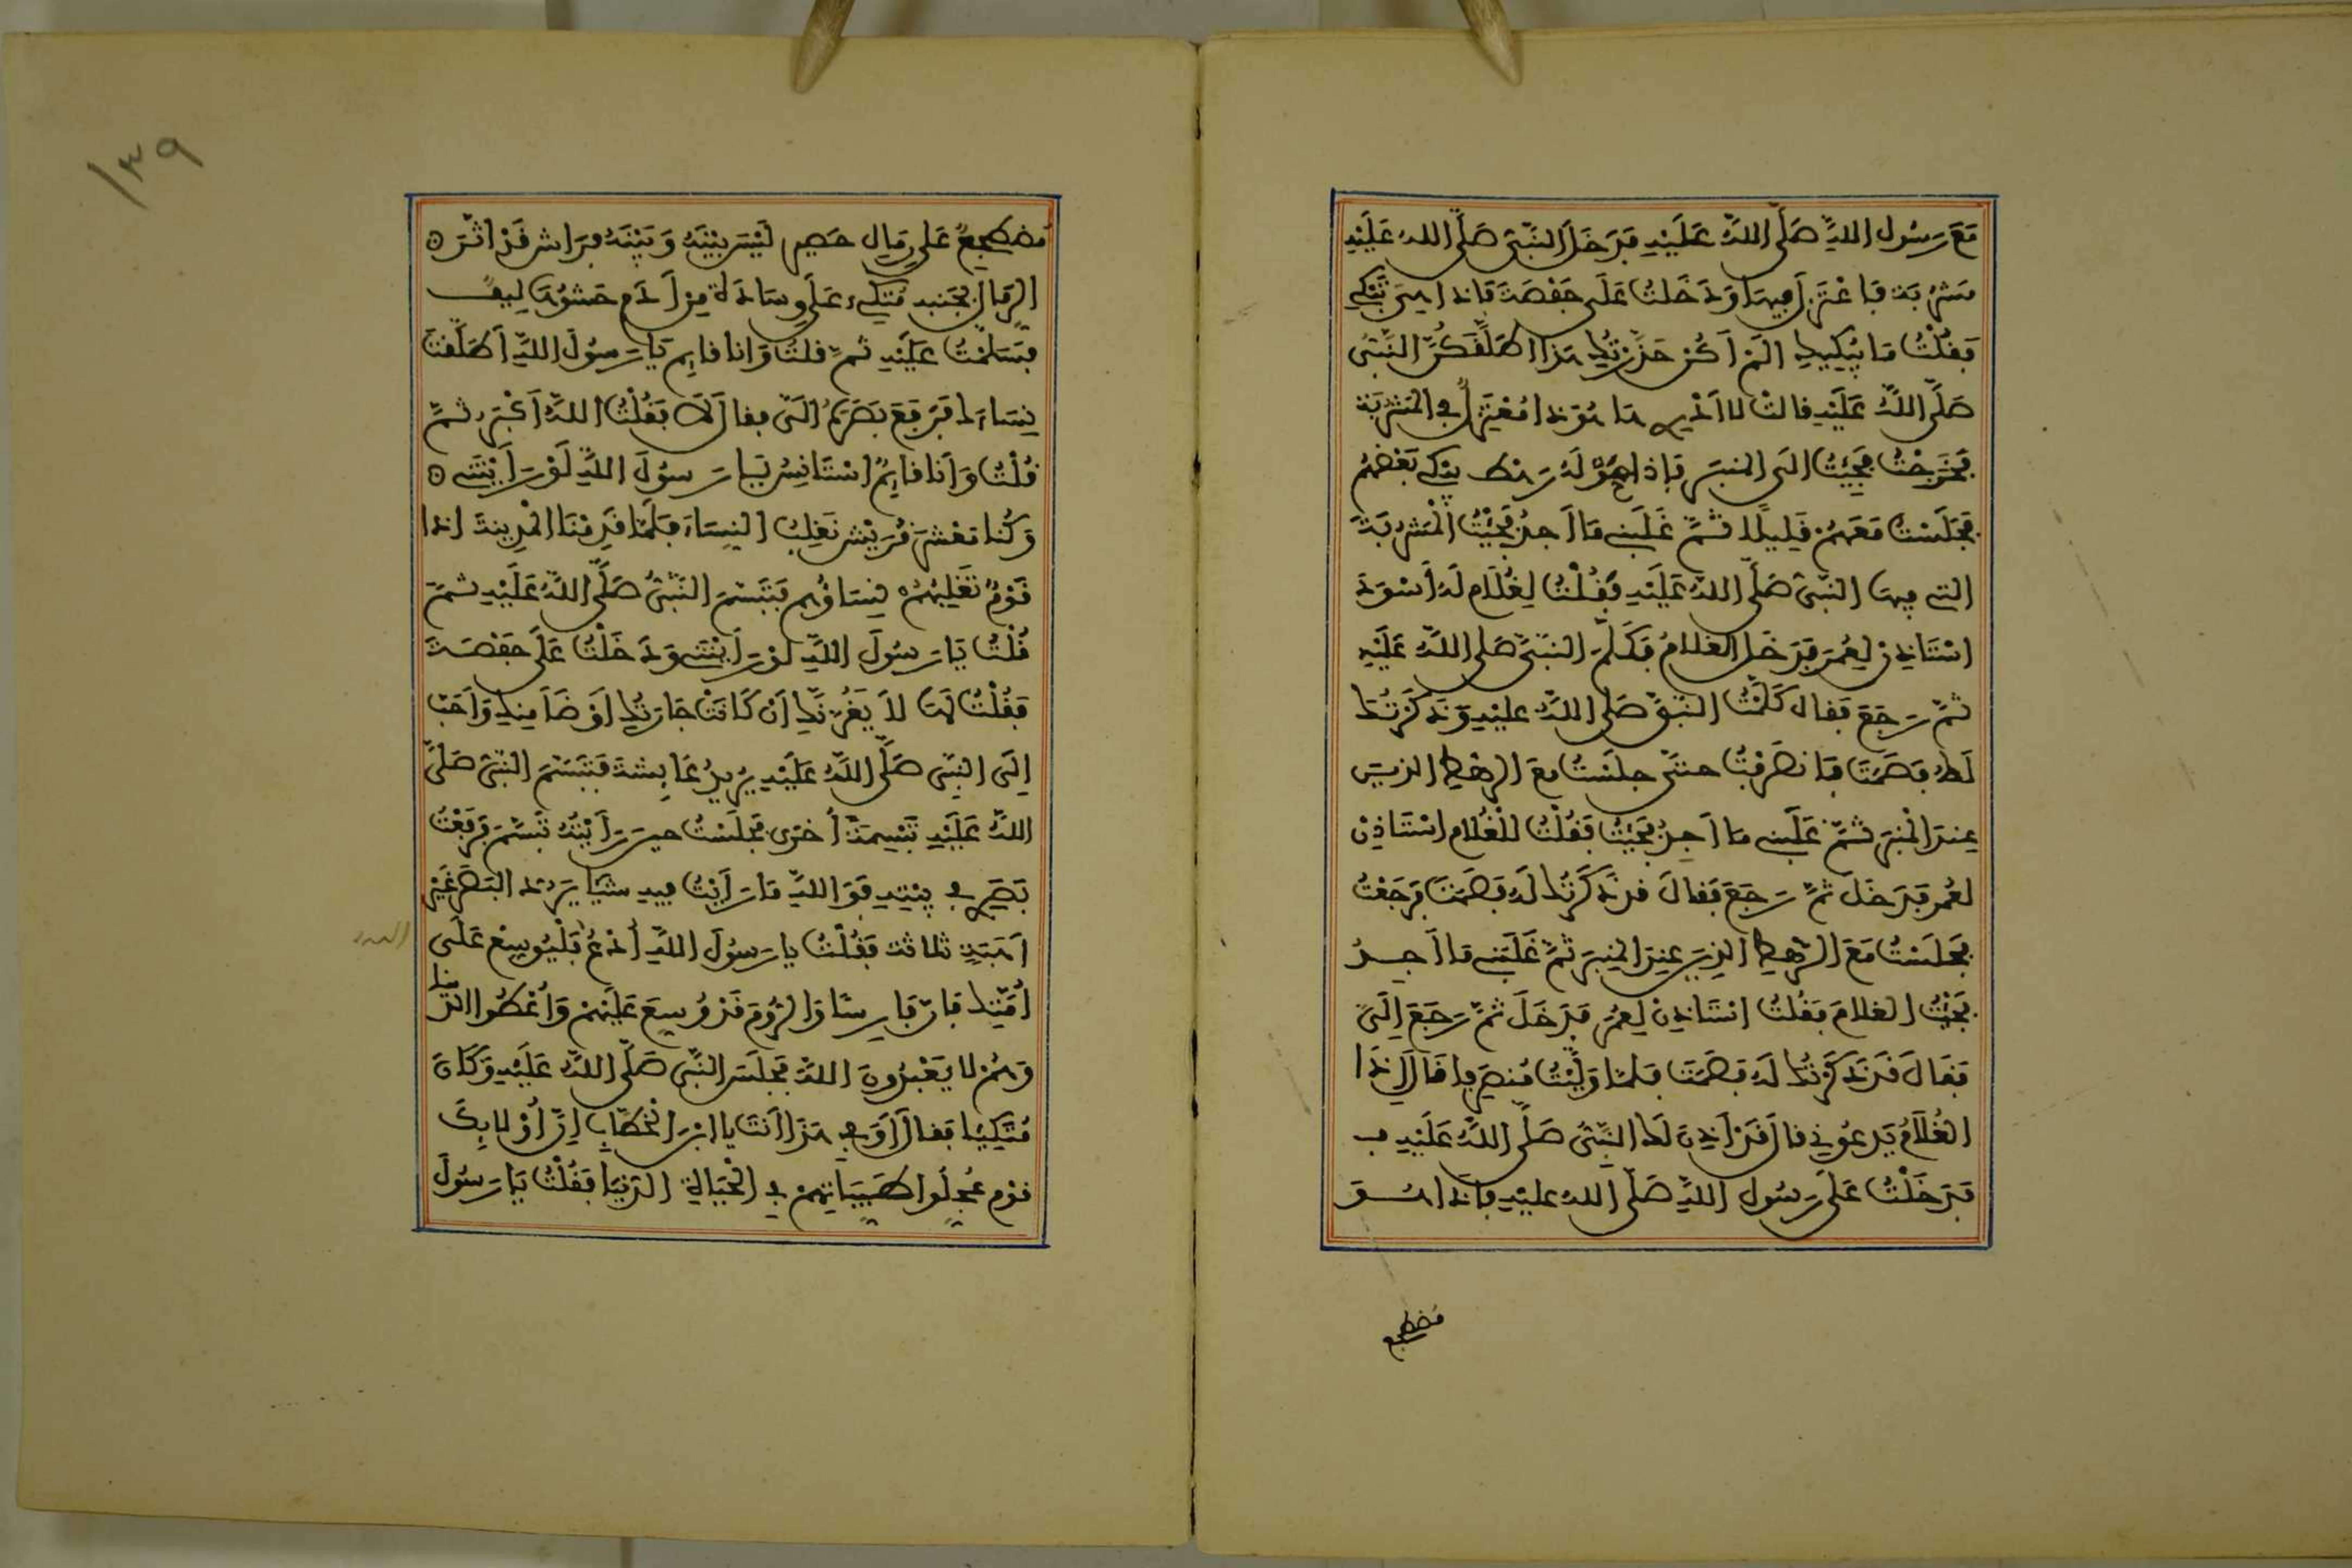 مَعَ رَسُولِ اللَّهِ صَلَّى اللَّهُ عَلَيْهِ فَدَخَلَ النَّبِيُّ صَلَّى اللهُ عَلَيْهِ
مَشْرُبَةً فَاعْتَزَلَ فِيهَا وَدَخَلْتُ عَلَى حَفْصَةَ فَإِذَا هِيَ تَبْكِي
فَقُلْتُ مَا يُبْكِيكِ أَلَمْ أَكُنْ حَذَّرْتُكِ هَذَا أَطَلَّقَكُنَّ النَّبِيُّ
صَلَّى اللَّهُ عَلَيْهِ قَالَتْ لَا أَدْرِي هَا هُوَ ذَا مُعْتَزِلٌ فِي الْمَشْرُبَةِ
فَخَرَجْتُ فَجِئْتُ إِلَى الْمِنْبَرِ فَإِذَا حَوْلَهُ رَهْطٌ يَبْكِي بَعْضُهُمْ
فَجَلَسْتُ مَعَهُمْ قَلِيلًا ثُمَّ غَلَبَنِي مَا أَجِدُ فَجِئْتُ الْمَشْرُبَةَ
الَّتِي فِيهَا النَّبِيُّ صَلَّى اللَّهُ عَلَيْهِ فَقُلْتُ لِغُلَامٍ لَهُ أَسْوَدَ
اسْتَأْذِنْ لِعُمَرَ فَدَخَلَ الْغُلَامُ فَكَلَّمَ النَّبِيَّ صَلَّى اللَّهُ عَلَيْهِ
ثُمَّ رَجَعَ فَقَالَ كَلَّمْتُ النَّبِيَّ صَلَّى اللَّهُ عَلَيْهِ وَذَكَرْتُكَ
لَهُ فَصَمَتَ فَانْصَرَفْتُ حَتَّى جَلَسْتُ مَعَ الرَّهْطِ الَّذِينَ
عِنْدَ الْمِنْبَرِ ثُمَّ غَلَبَنِي مَا أَجِدُ فَجِئْتُ فَقُلْتُ لِلْغُلَامِ اسْتَأْذِنْ
لِعُمَرَ فَدَخَلَ ثُمَّ رَجَعَ فَقَالَ قَدْ ذَكَرْتُكَ لَهُ فَصَمَتَ فَرَجَعْتُ
فَجَلَسْتُ مَعَ الرَّهْطِ الَّذِينَ عِنْدَ الْمِنْبَرِ ثُمَّ غَلَبَنِي مَا أَجِدُ
فَجِئْتُ الْغُلَامَ فَقُلْتُ اسْتَأْذِنْ لِعُمَرَ فَدَخَلَ ثُمَّ رَجَعَ إِلَيَّ
فَقَالَ قَدْ ذَكَرْتُكَ لَهُ فَصَمَتَ فَلَمَّا وَلَّيْتُ مُنْصَرِفًا قَالَ إِذَا
الْغُلَامُ يَدْعُونِي قَالَ قَدْ أَذِنَ لَكَ النَّبِيُّ صَلَّى اللَّهُ عَلَيْهِ
فَدَخَلْتُ عَلَى رَسُولِ اللَّهِ صَلَّى اللهُ عَلَيْهِ فَإِذَا هُوَ
مُضْطَجِعٌ
١٣٩
مُضْطَجِعٌ عَلَى رِمَالِ حَصِيرٍ لَيْسَ بَيْنَهُ وَبَيْنَهُ فِرَاشٌ قَدْ أَثَّرَ
الرِّمَالُ بِجَنْبِهِ مُتَّكِئٌ عَلَى وِسَادَةٍ مِنْ أَدَمٍ حَشْوُهَا لِيفٌ
فَسَلَّمْتُ عَلَيْهِ ثُمَّ قُلْتُ وَأَنَا قَائِمٌ يَا رَسُولَ اللَّهِ أَطَلَّقْتَ
نِسَاءَكَ فَرَفَعَ بَصَرَهُ إِلَيَّ فَقَالَ لَا فَقُلْتُ اللَّهُ أَكْبَرُ ثُمَّ
قُلْتُ وَأَنَا قَائِمٌ أَسْتَأْنِسُ يَا رَسُولَ اللَّهِ لَوْ رَأَيْتَنِي
وَكُنَّا مَعْشَرَ قُرَيْشٍ نَغْلِبُ النِّسَاءَ فَلَمَّا قَدِمْنَا الْمَدِينَةَ إِذَا
قَوْمٌ تَغْلِبُهُمْ نِسَاؤُهُمْ فَتَبَسَّمَ النَّبِيُّ صَلَّى اللَّهُ عَلَيْهِ ثُمَّ
قُلْتُ يَا رَسُولَ اللَّهِ لَوْ رَأَيْتَنِي وَدَخَلْتُ عَلَى حَفْصَةَ
فَقُلْتُ لَهَا لَا يَغُرَّنَّكِ أَنْ كَانَتْ جَارَتُكِ أَوْضَأَ مِنْكِ وَأَحَبَّ
إِلَى النَّبِيِّ صَلَّى اللَّهُ عَلَيْهِ يُرِيدُ عَائِشَةَ فَتَبَسَّمَ النَّبِيُّ صَلَّى
اللَّهُ عَلَيْهِ تَبْسِمَةً أُخْرَى فَجَلَسْتُ حِينَ رَأَيْتُهُ تَبَسَّمَ فَرَفَعْتُ
بَصَرِي فِي بَيْتِهِ فَوَاللَّهِ مَا رَأَيْتُ فِيهِ شَيْئًا يَرُدُّ الْبَصَرَ غَيْرَ
أَهَبَةٍ ثَلَاثَةٍ فَقُلْتُ يَا رَسُولَ اللَّهِ ادْعُ فَلْيُوَسِّعْ عَلَى
أُمَّتِكَ فَإِنَّ فَارِسًا وَالرُّومَ قَدْ وُسِّعَ عَلَيْهِمْ وَأُعْطُوا الدُّنْيَا
وَهُمْ لَا يَعْبُدُونَ اللَّهَ فَجَلَسَ النَّبِيُّ صَلَّى اللَّهُ عَلَيْهِ وَكَانَ
مُتَّكِئًا فَقَالَ أَوَفِي هَذَا أَنْتَ يَا ابْنَ الْخَطَّابِ إِنَّ أُولَئِكَ
قَوْمٌ عُجِّلُوا طَيِّبَاتِهِمْ فِي الْحَيَاةِ الدُّنْيَا فَقُلْتُ يَا رَسُولَ